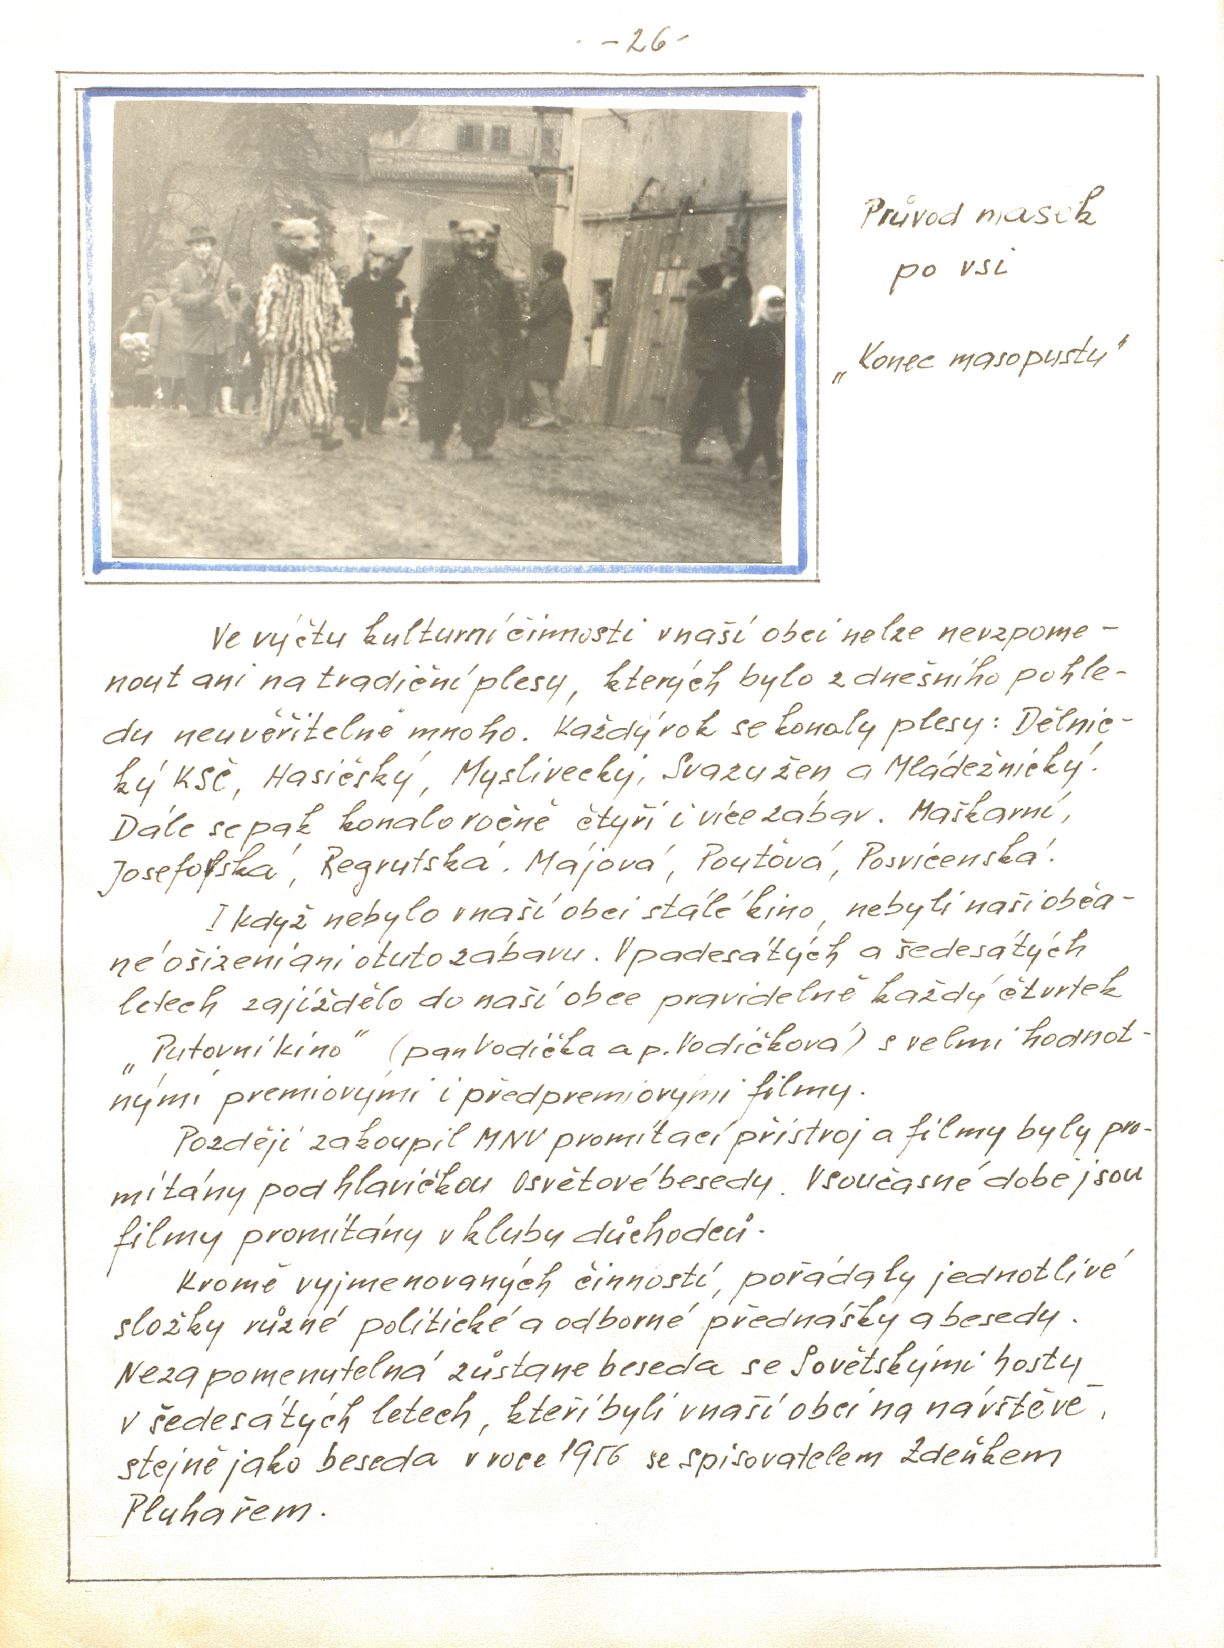 -26-
Průvod masek
po vsi
„Konec masopustu"
Ve výčtu kulturní činnosti v naší obci nelze nevzpome-
nout ani na tradiční plesy, kterých bylo z dnešního pohle-
du neuvěřitelně mnoho. Každý rok se konaly plesy: Dělnic-
ký KSČ, Hasičský, Myslivecký, Svazu žen a Mládežnický.
Dále se pak konalo ročně čtyři i více zábav. Maškarní,
Josefofská, Regrutská. Májová, Pouťová, Posvícenská.
I když nebylo v naší obci stálé kino, nebyli naši obča-
né ošizeni ani o tuto zábavu. V padesátých a šedesátých
letech zajíždělo do naší obce pravidelně každý čtvrtek
„Putovní kino" (pan Vodička a p. Vodičková) s velmi hodnot-
nými premiovými i předpremiovými filmy.
Později zakoupil MNV promítací přístroj a filmy byly pro-
mítány pod hlavičkou Osvětové besedy. V současné době jsou
filmy promítány v kluby důchodců.
Kromě vyjmenovaných činností, pořádaly jednotlivé
složky různé politické a odborné přednášky a besedy.
Nezapomenutelná zůstane beseda se Sovětskými hosty
v šedesátých letech, kteří byli v naší obci na návštěvě,
stejně jako beseda v roce 1956 se spisovatelem Zdeňkem
Pluhařem.